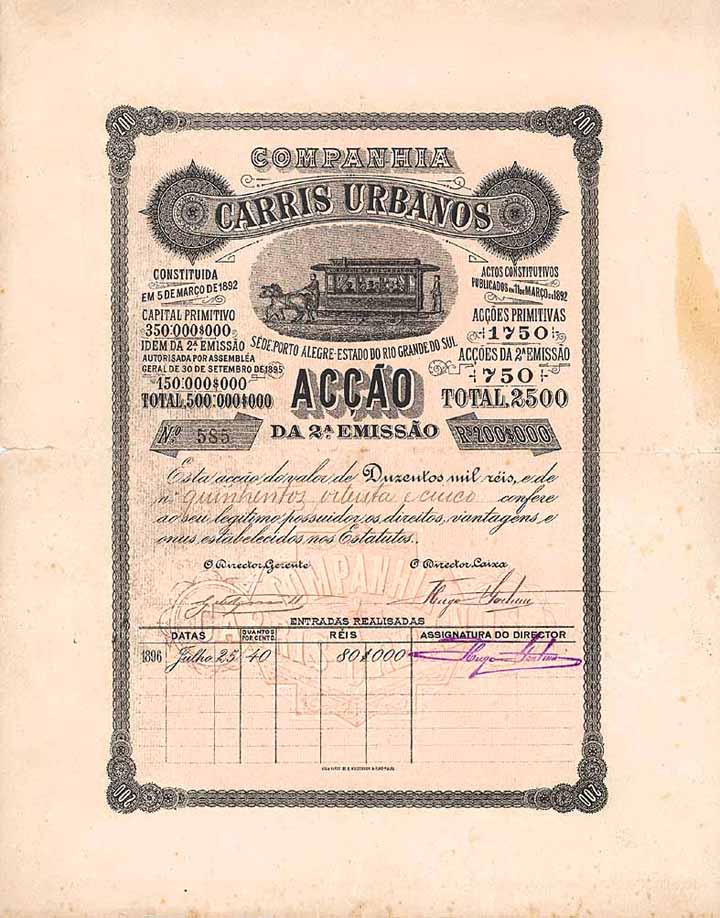 200
200
COMPANHIA
CARRIS URBANOS
CONSTITUIDA
EM 5 DE MARÇO DE 1892
CAPITAL PRIMITIVO
350:000$000
IDEM DA 2ª EMISSÃO
AUTORISADA POR ASSEMBLÉA
GERAL DE 30 DE SETEMBRO DE 1895
150:000$000
TOTAL, 500:000$000
ACTOS CONSTITUTIVOS
PUBLICADOS EM 11 DE MARÇO DE 1892
ACÇÕES PRIMITIVAS
1750
ACÇÕES DA 2ª EMISSÃO
750
TOTAL, 2500
SÉDE: PORTO ALEGRE-ESTADO DO RIO GRANDE DO SUL
ACÇÃO
DA 2ª EMISSÃO
Nº 585
Rs 200$000
Esta acção do valor de Duzentos mil réis, e de
nº quinhentos oitenta e cinco confere
ao seu legitimo possuidor os direitos, vantagens e
onus estabelecidos nos Estatutos.
O Director Gerente
O Director Caixa
COMPANHIA
ENTRADAS REALISADAS
DATAS QUANTOS POR CENTO. RÉIS ASSIGNATURA DO DIRECTOR
1896 Julho 25 40 80$000
200
200